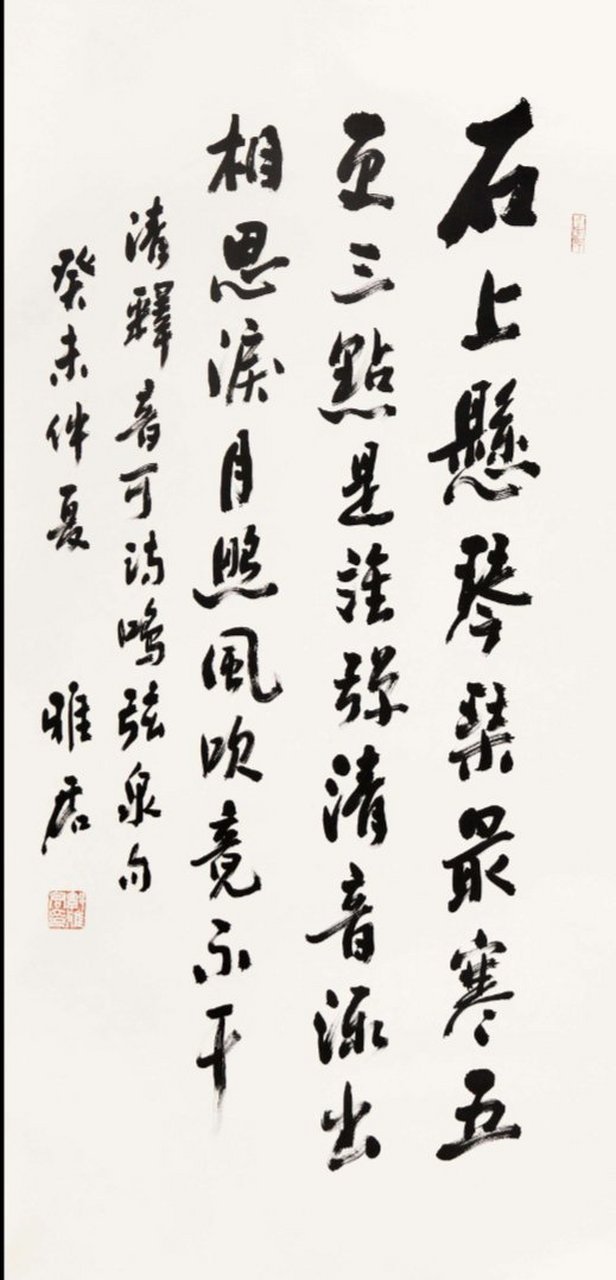 石上懸琴琹最寒五
更三點是誰彈清音流出
相思淚月照風吹竟不干
清釋音可詩鳴弦泉句
癸未仲夏 雅君